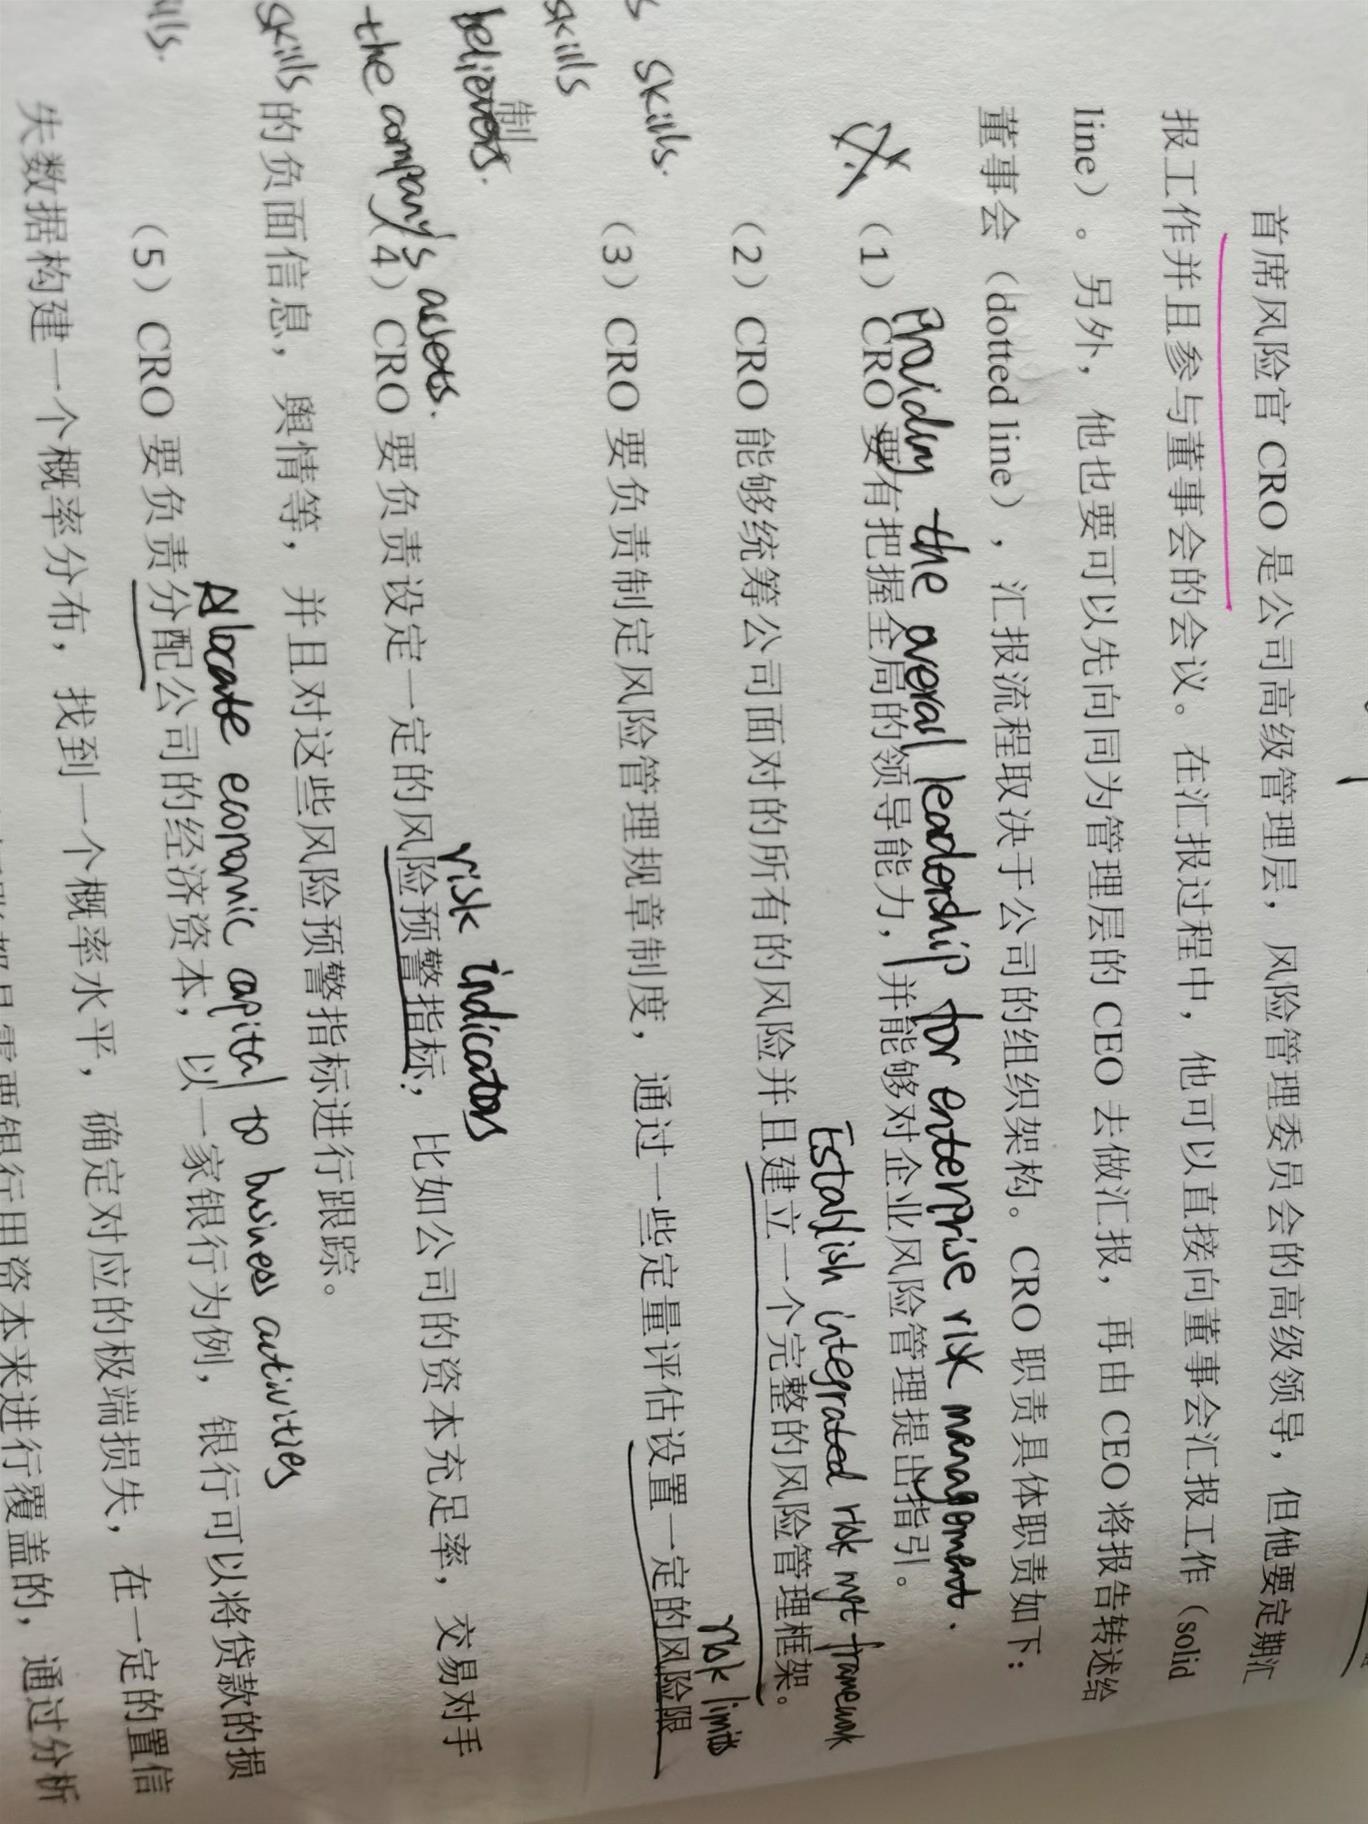 首席风险官 CRO 是公司高级管理层，风险管理委员会的高级领导，但他要定期汇
报工作并且参与董事会的会议。在汇报过程中，他可以直接向董事会汇报工作（solid
line）。另外，他也要可以先向同为管理层的 CEO 去做汇报，再由 CEO 将报告转述给
董事会（dotted line），汇报流程取决于公司的组织架构。CRO 职责具体职责如下：
Providing the overall leadership for enterprise risk management.
（1）CRO 要有把握全局的领导能力，并能够对企业风险管理提出指引。
Establish integrated risk mgt framework
（2）CRO 能够统筹公司面对的所有的风险并且建立一个完整的风险管理框架。
risk limits
skills.
（3）CRO 要负责制定风险管理规章制度，通过一些定量评估设置一定的风险限
skills
制
believers.
risk indicators
the company's assets.
（4）CRO 要负责设定一定的风险预警指标，比如公司的资本充足率，交易对手
skills
的负面信息，舆情等，并且对这些风险预警指标进行跟踪。
Allocate economic capital to business activities
（5）CRO 要负责分配公司的经济资本，以一家银行为例，银行可以将贷款的损
失数据构建一个概率分布，找到一个概率水平，确定对应的极端损失，在一定的置信
需要银行用资本来进行覆盖的，通过分析